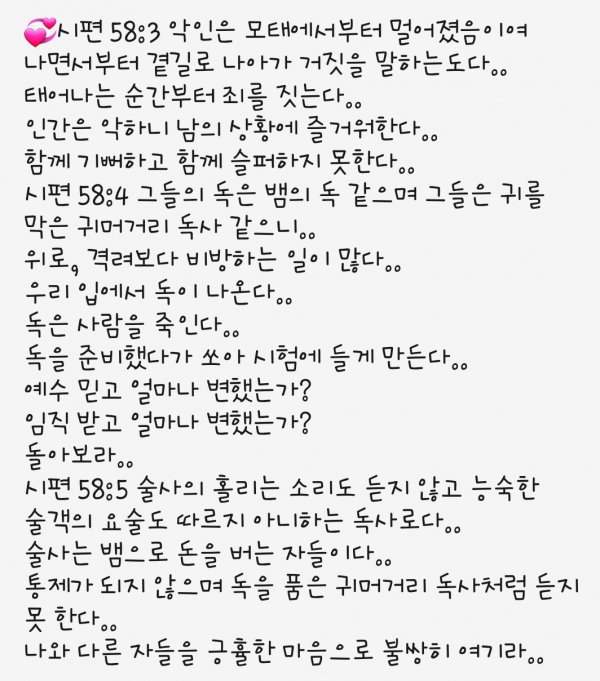 💞시편 58:3 악인은 모태에서부터 멀어졌음이여
나면서부터 곁길로 나아가 거짓을 말하는도다..
태어나는 순간부터 죄를 짓는다..
인간은 악하니 남의 상황에 즐거워한다..
함께 기뻐하고 함께 슬퍼하지 못한다..
시편 58:4 그들의 독은 뱀의 독 같으며 그들은 귀를
막은 귀머거리 독사 같으니..
위로, 격려보다 비방하는 일이 많다..
우리 입에서 독이 나온다..
독은 사람을 죽인다..
독을 준비했다가 쏘아 시험에 들게 만든다..
예수 믿고 얼마나 변했는가?
임직 받고 얼마나 변했는가?
돌아보라..
시편 58:5 술사의 홀리는 소리도 듣지 않고 능숙한
술객의 요술도 따르지 아니하는 독사로다..
술사는 뱀으로 돈을 버는 자들이다..
통제가 되지 않으며 독을 품은 귀머거리 독사처럼 듣지
못 한다..
나와 다른 자들을 긍휼한 마음으로 불쌍히 여기라..